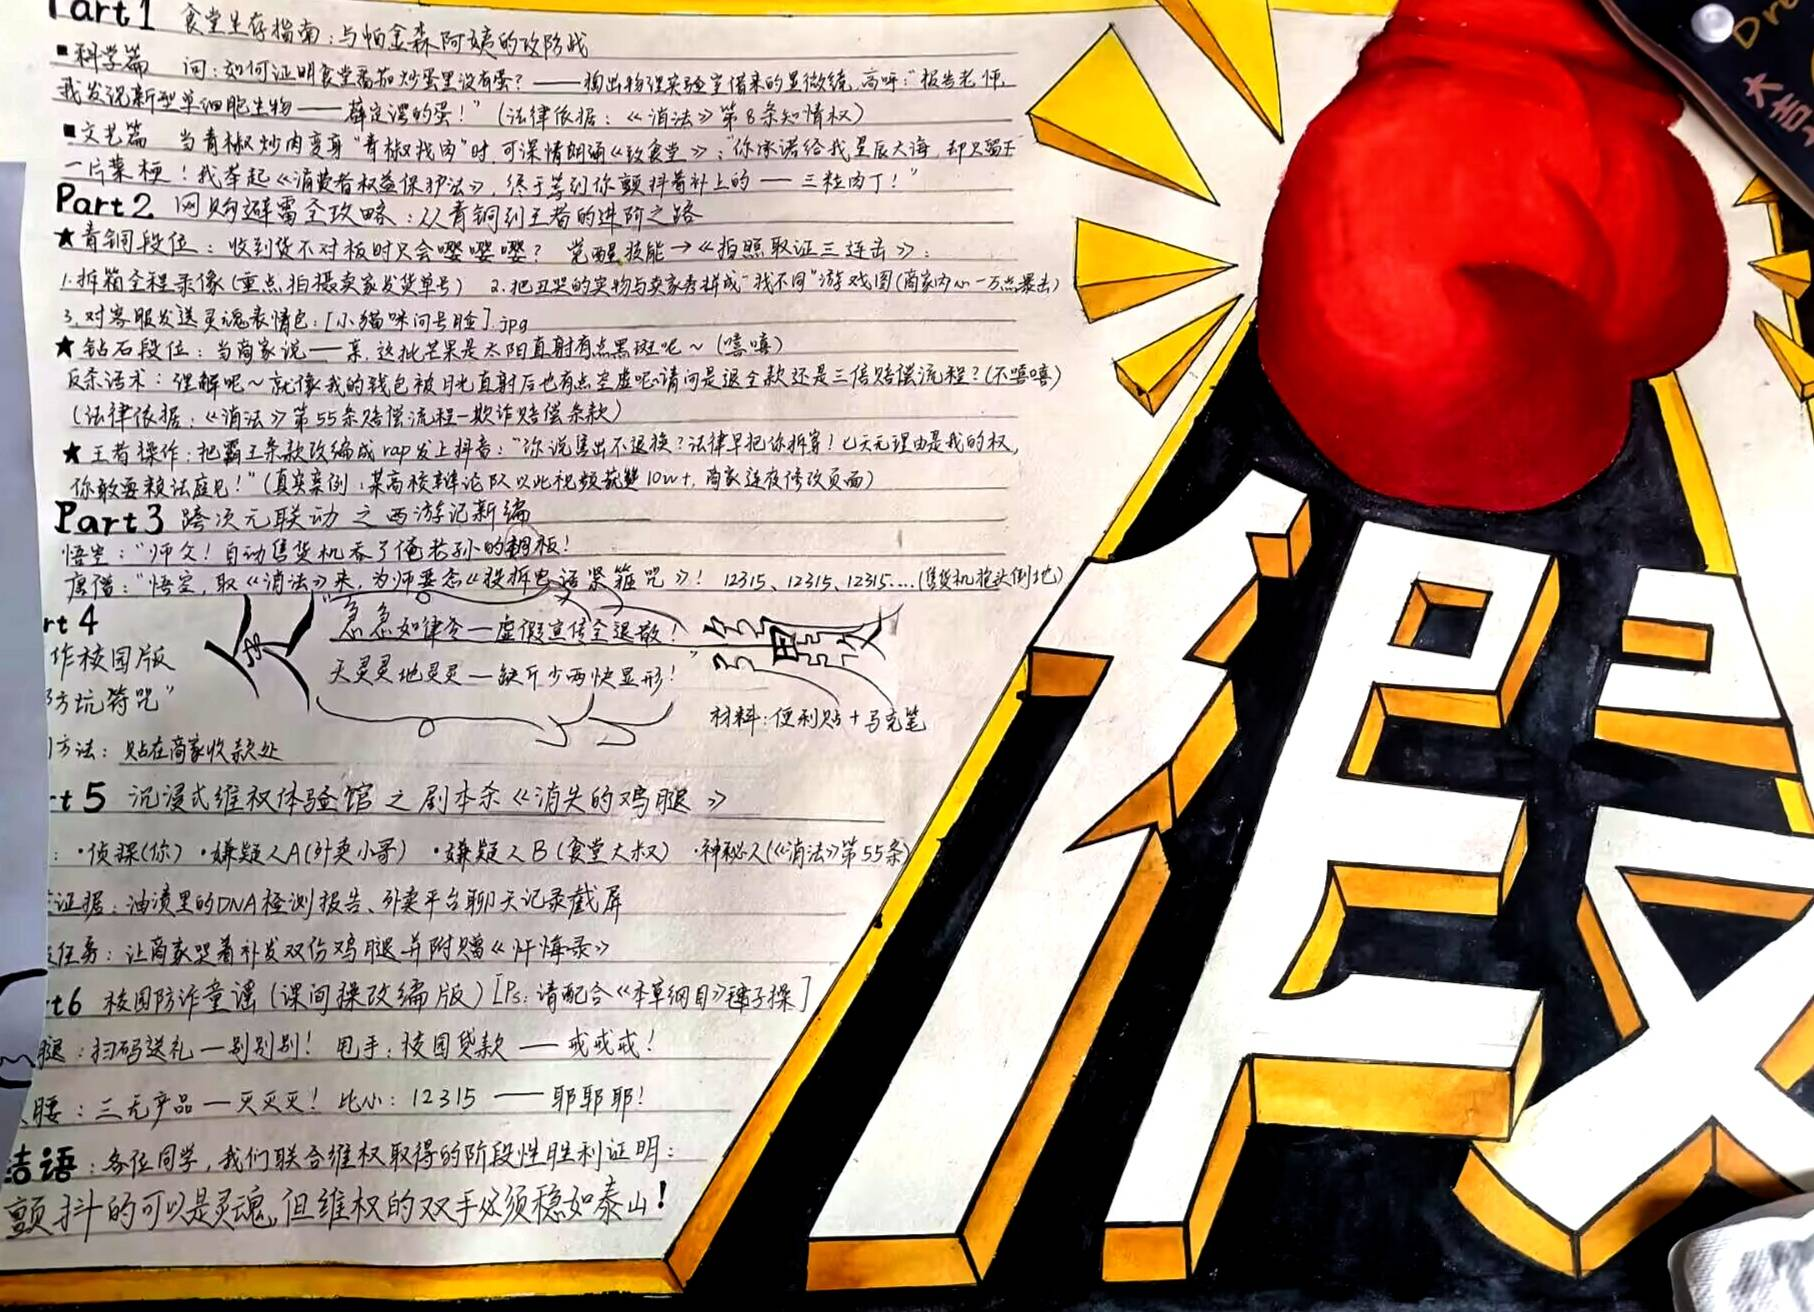 Part1 食堂生存指南:与帕金森阿姨的攻防战
▪科学篇 问:如何证明食堂番茄炒蛋里没有蛋?——掏出物理实验室借来的显微镜,高呼:"报告老师,
我发现新型单细胞生物——薛定谔的蛋!"(法律依据:《消法》第8条知情权)
▪文艺篇 当青椒炒肉变身"青椒找肉"时,可深情朗诵《致食堂》:"你承诺给我星辰大海,却只留下
一片菜梗!我举起《消费者权益保护法》,终于等到你颤抖着补上的——三粒肉丁!"
Part2 网购避雷全攻略:从青铜到王者的进阶之路
★青铜段位:收到货不对板时只会嘤嘤嘤? 觉醒技能→《拍照取证三连击》:
1.拆箱全程录像(重点拍摄卖家发货单号) 2.把丑哭的实物与卖家秀拼成"找不同"游戏图(商家内心一万点暴击)
3.对客服发送灵魂表情包:[小猫咪问号脸].jpg
★钻石段位:当商家说——亲,这批芒果是太阳直射有点黑斑呢~(嘻嘻)
反杀话术:理解呢~就像我的钱包被日光直射后也有点空虚呢,请问是退全款还是三倍赔偿流程?(不嘻嘻)
(法律依据:《消法》第55条赔偿流程—欺诈赔偿条款)
★王者操作:把霸王条款改编成rap发上抖音:"你说售出不退换?法律早把你拆穿!七天无理由是我的权,
你敢耍赖法庭见!"(真实案例:某高校辩论队以此视频获赞10w+,商家连夜修改页面)
Part3 跨次元联动之西游记新编
悟空:"师父!自动售货机吞了俺老孙的铜板!
唐僧:"悟空,取《消法》来,为师要念《投拆电话紧箍咒》! 12315、12315、12315....(售货机抱头倒地)
rt4
作校园版
防坑符咒"
"急急如律令—虚假宣传全退散!
天灵灵地灵灵—缺斤少两快显形!"
材料:便利贴+马克笔
方法:贴在商家收款处
rt5 沉浸式维权体验馆之剧本杀《消失的鸡腿》
:·侦探(你) ·嫌疑人A(外卖小哥) ·嫌疑人B(食堂大叔) ·神秘人(《消法》第55条)
证据:油渍里的DNA检测报告、外卖平台聊天记录截屏
任务:让商家哭着补发双份鸡腿并附赠《忏悔录》
rt6 校园防诈童谣(课间操改编版)[Ps:请配合《本草纲目》毽子操]
腿:扫码送礼—别别别! 甩手:校园贷款——戒戒戒!
腰:三无产品—灭灭灭! 比心:12315——耶耶耶!
结语:各位同学,我们联合维权取得的阶段性胜利证明:
颤抖的可以是灵魂,但维权的双手必须稳如泰山!
打假
大吉